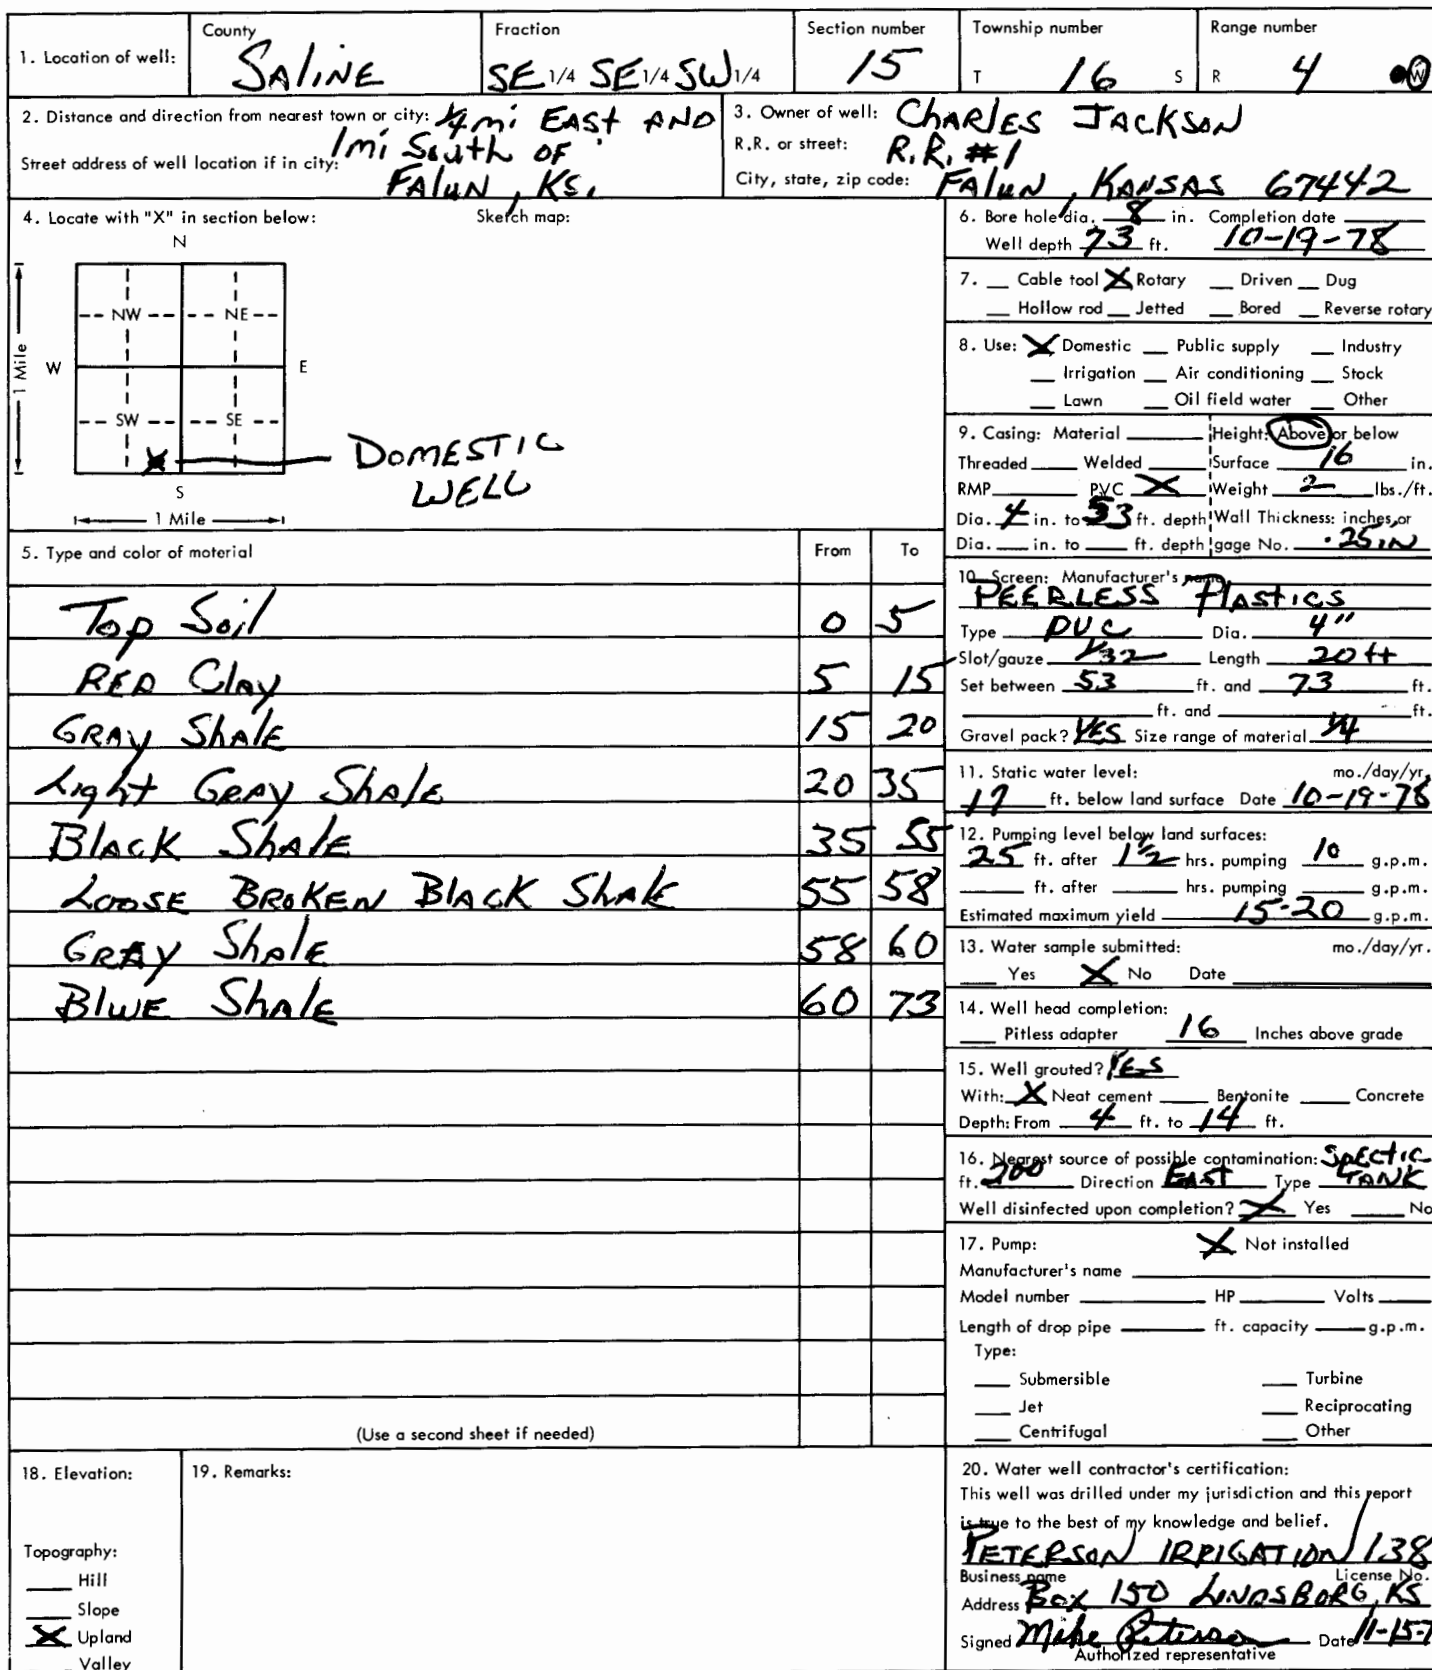 1. Location of well: County SALINE Fraction SE 1/4 SE 1/4 SW 1/4 Section number 15 Township number T 16 S Range number R 4 W
2. Distance and direction from nearest town or city: 1/4 mi EAST AND
Street address of well location if in city: 1 mi South OF
FALUN, KS.
3. Owner of well: CHARLES JACKSON
R.R. or street: R.R. #1
City, state, zip code: FALUN, KANSAS 67442
4. Locate with "X" in section below: Sketch map:
N
NW NE
W E
1 Mile
SW SE
X DOMESTIC
WELL
S
1 Mile
5. Type and color of material From To
Top Soil 0 5
RED Clay 5 15
GRAY Shale 15 20
Light GRAY Shale 20 35
BLACK Shale 35 55
LOOSE BROKEN BLACK Shale 55 58
GRAY Shale 58 60
BLUE Shale 60 73
(Use a second sheet if needed)
6. Bore hole dia. 8 in. Completion date
Well depth 73 ft. 10-19-78
7. Cable tool X Rotary Driven Dug
Hollow rod Jetted Bored Reverse rotary
8. Use: X Domestic Public supply Industry
Irrigation Air conditioning Stock
Lawn Oil field water Other
9. Casing: Material Height: Above or below
Threaded Welded Surface 16 in.
RMP PVC X Weight 2 lbs./ft.
Dia. 4 in. to 53 ft. depth Wall Thickness: inches or
Dia. in. to ft. depth gage No. .25 IN
10. Screen: Manufacturer's name
PEERLESS PLASTICS
Type PVC Dia. 4"
Slot/gauze 1/32 Length 20 ft
Set between 53 ft. and 73 ft.
ft. and ft.
Gravel pack? YES Size range of material 1/4
11. Static water level: mo./day/yr.
17 ft. below land surface Date 10-19-78
12. Pumping level below land surfaces:
25 ft. after 1 1/2 hrs. pumping 10 g.p.m.
ft. after hrs. pumping g.p.m.
Estimated maximum yield 15-20 g.p.m.
13. Water sample submitted: mo./day/yr.
Yes X No Date
14. Well head completion:
Pitless adapter 16 Inches above grade
15. Well grouted? YES
With: X Neat cement Bentonite Concrete
Depth: From 4 ft. to 14 ft.
16. Nearest source of possible contamination: SPECTIC
ft. 200 Direction EAST Type TANK
Well disinfected upon completion? X Yes No
17. Pump: X Not installed
Manufacturer's name
Model number HP Volts
Length of drop pipe ft. capacity g.p.m.
Type:
Submersible Turbine
Jet Reciprocating
Centrifugal Other
18. Elevation:
Topography:
Hill
Slope
X Upland
Valley
19. Remarks:
20. Water well contractor's certification:
This well was drilled under my jurisdiction and this report
is true to the best of my knowledge and belief.
PETERSON IRRIGATION 138
Business name License No.
Address BOX 150 LINDSBORG, KS
Signed Mike Peterson Date 11-15-7
Authorized representative